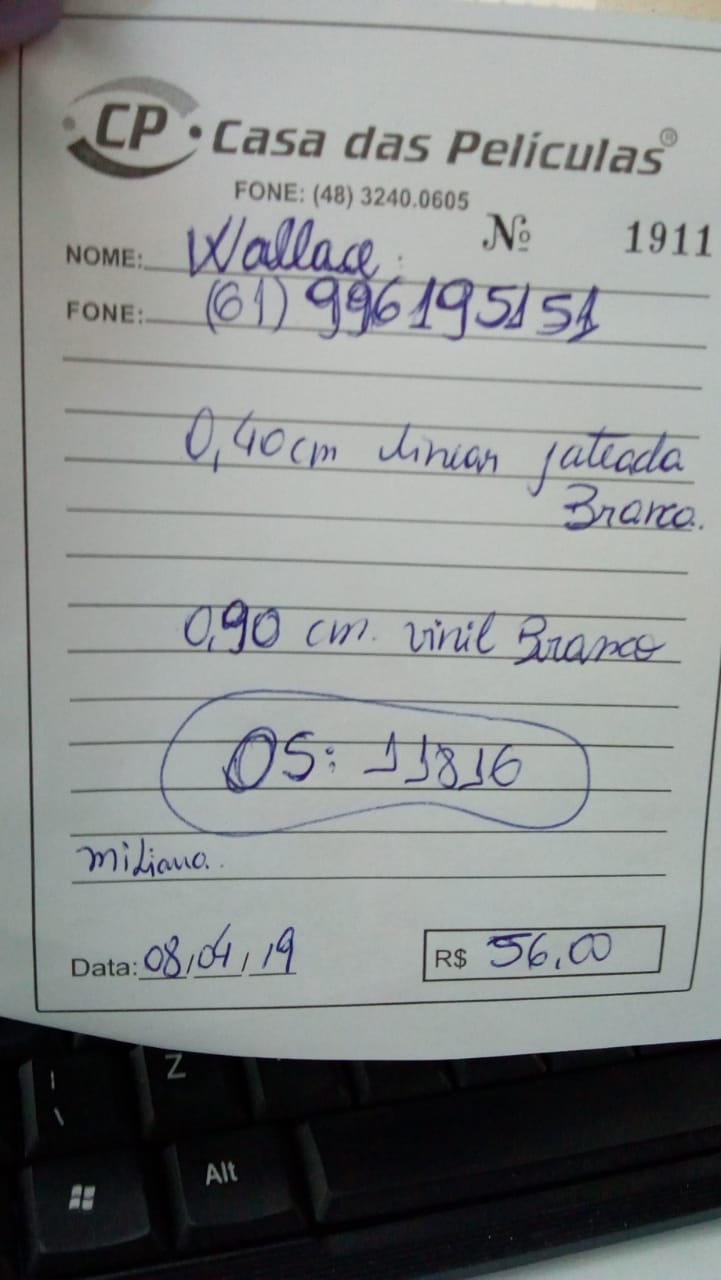 CP • Casa das Películas®
FONE: (48) 3240.0605
Nº 1911
NOME: Wallace.
FONE: (61) 996195151
0,40cm linear jateada
Branca.
0,90 cm. vinil Branco
OS: 11816
Data: 08/04/19
R$ 56,00
Z
| \
Alt